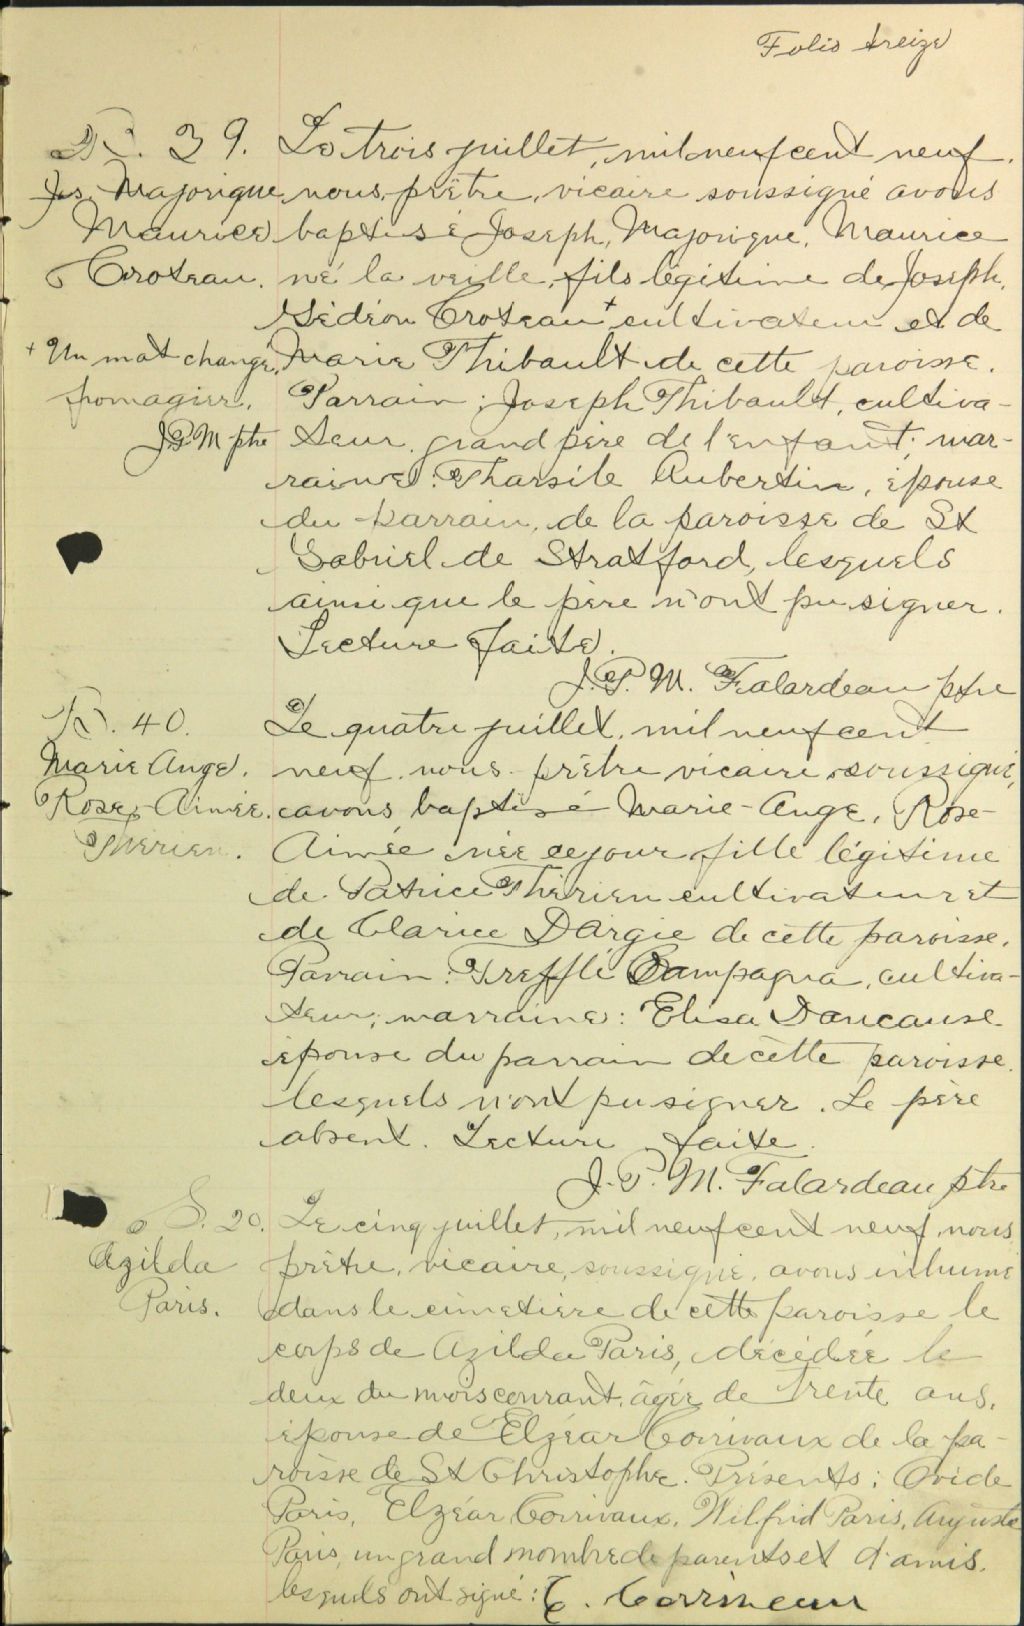 Folio treize
B. 39. Le trois juillet, mil neuf cent neuf.
Jos. Majorique nous, prêtre, vicaire soussigné avons
Maurice baptisé Joseph, Majorique, Maurice
Croteau. né la veille, fils légitime de Joseph,
Gédéon Croteau + cultivateur et de
+ Un mot changé, Marie Thibault de cette paroisse.
fromagier. Parrain : Joseph Thibault, cultiva-
J.P.M ptre teur, grand père de l'enfant; mar-
raine : Tharsile Aubertin, épouse
du parrain, de la paroisse de St
Gabriel de Stratford, lesquels
ainsi que le père n'ont pu signer.
Lecture faite.
J. P. M. Falardeau ptre
B. 40. Le quatre juillet, mil neuf cent
Marie Ange. neuf, nous prêtre vicaire soussigné,
Rose-Aimée. avons baptisé Marie-Ange, Rose-
Thérien. Aimée née ce jour, fille légitime
de Patrice Thérien cultivateur et
de Clarice Dargie de cette paroisse.
Parrain : Trefflé Campagna, cultiva-
teur; marraine : Elisa Daucause
épouse du parrain de cette paroisse
lesquels n'ont pu signer. Le père
absent. Lecture faite.
J. P. M. Falardeau ptre
S. 20. Le cinq juillet, mil neuf cent neuf, nous
Azilda prêtre, vicaire, soussigné, avons inhumé
Paris. dans le cimetière de cette paroisse le
corps de Azilda Paris, décédée le
deux du mois courant, âgée de trente ans,
épouse de Elzéar Corrivaux de la pa-
roisse de St Christophe. Présents : Ovide
Paris, Elzéar Corrivaux, Wilfrid Paris, Auguste
Paris, un grand nombre de parents et d'amis.
lesquels ont signé : E. Corriveau